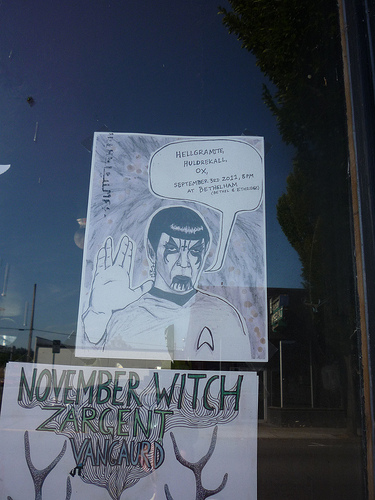 HELLGRAMITE,
HULDREKALL,
OX,
SEPTEMBER 3RD 2012, 8PM
AT BETHELHAM
(BETHEL & ETHERIDGE)
NOVEMBER WITCH
ZARGENT
VANGAURD